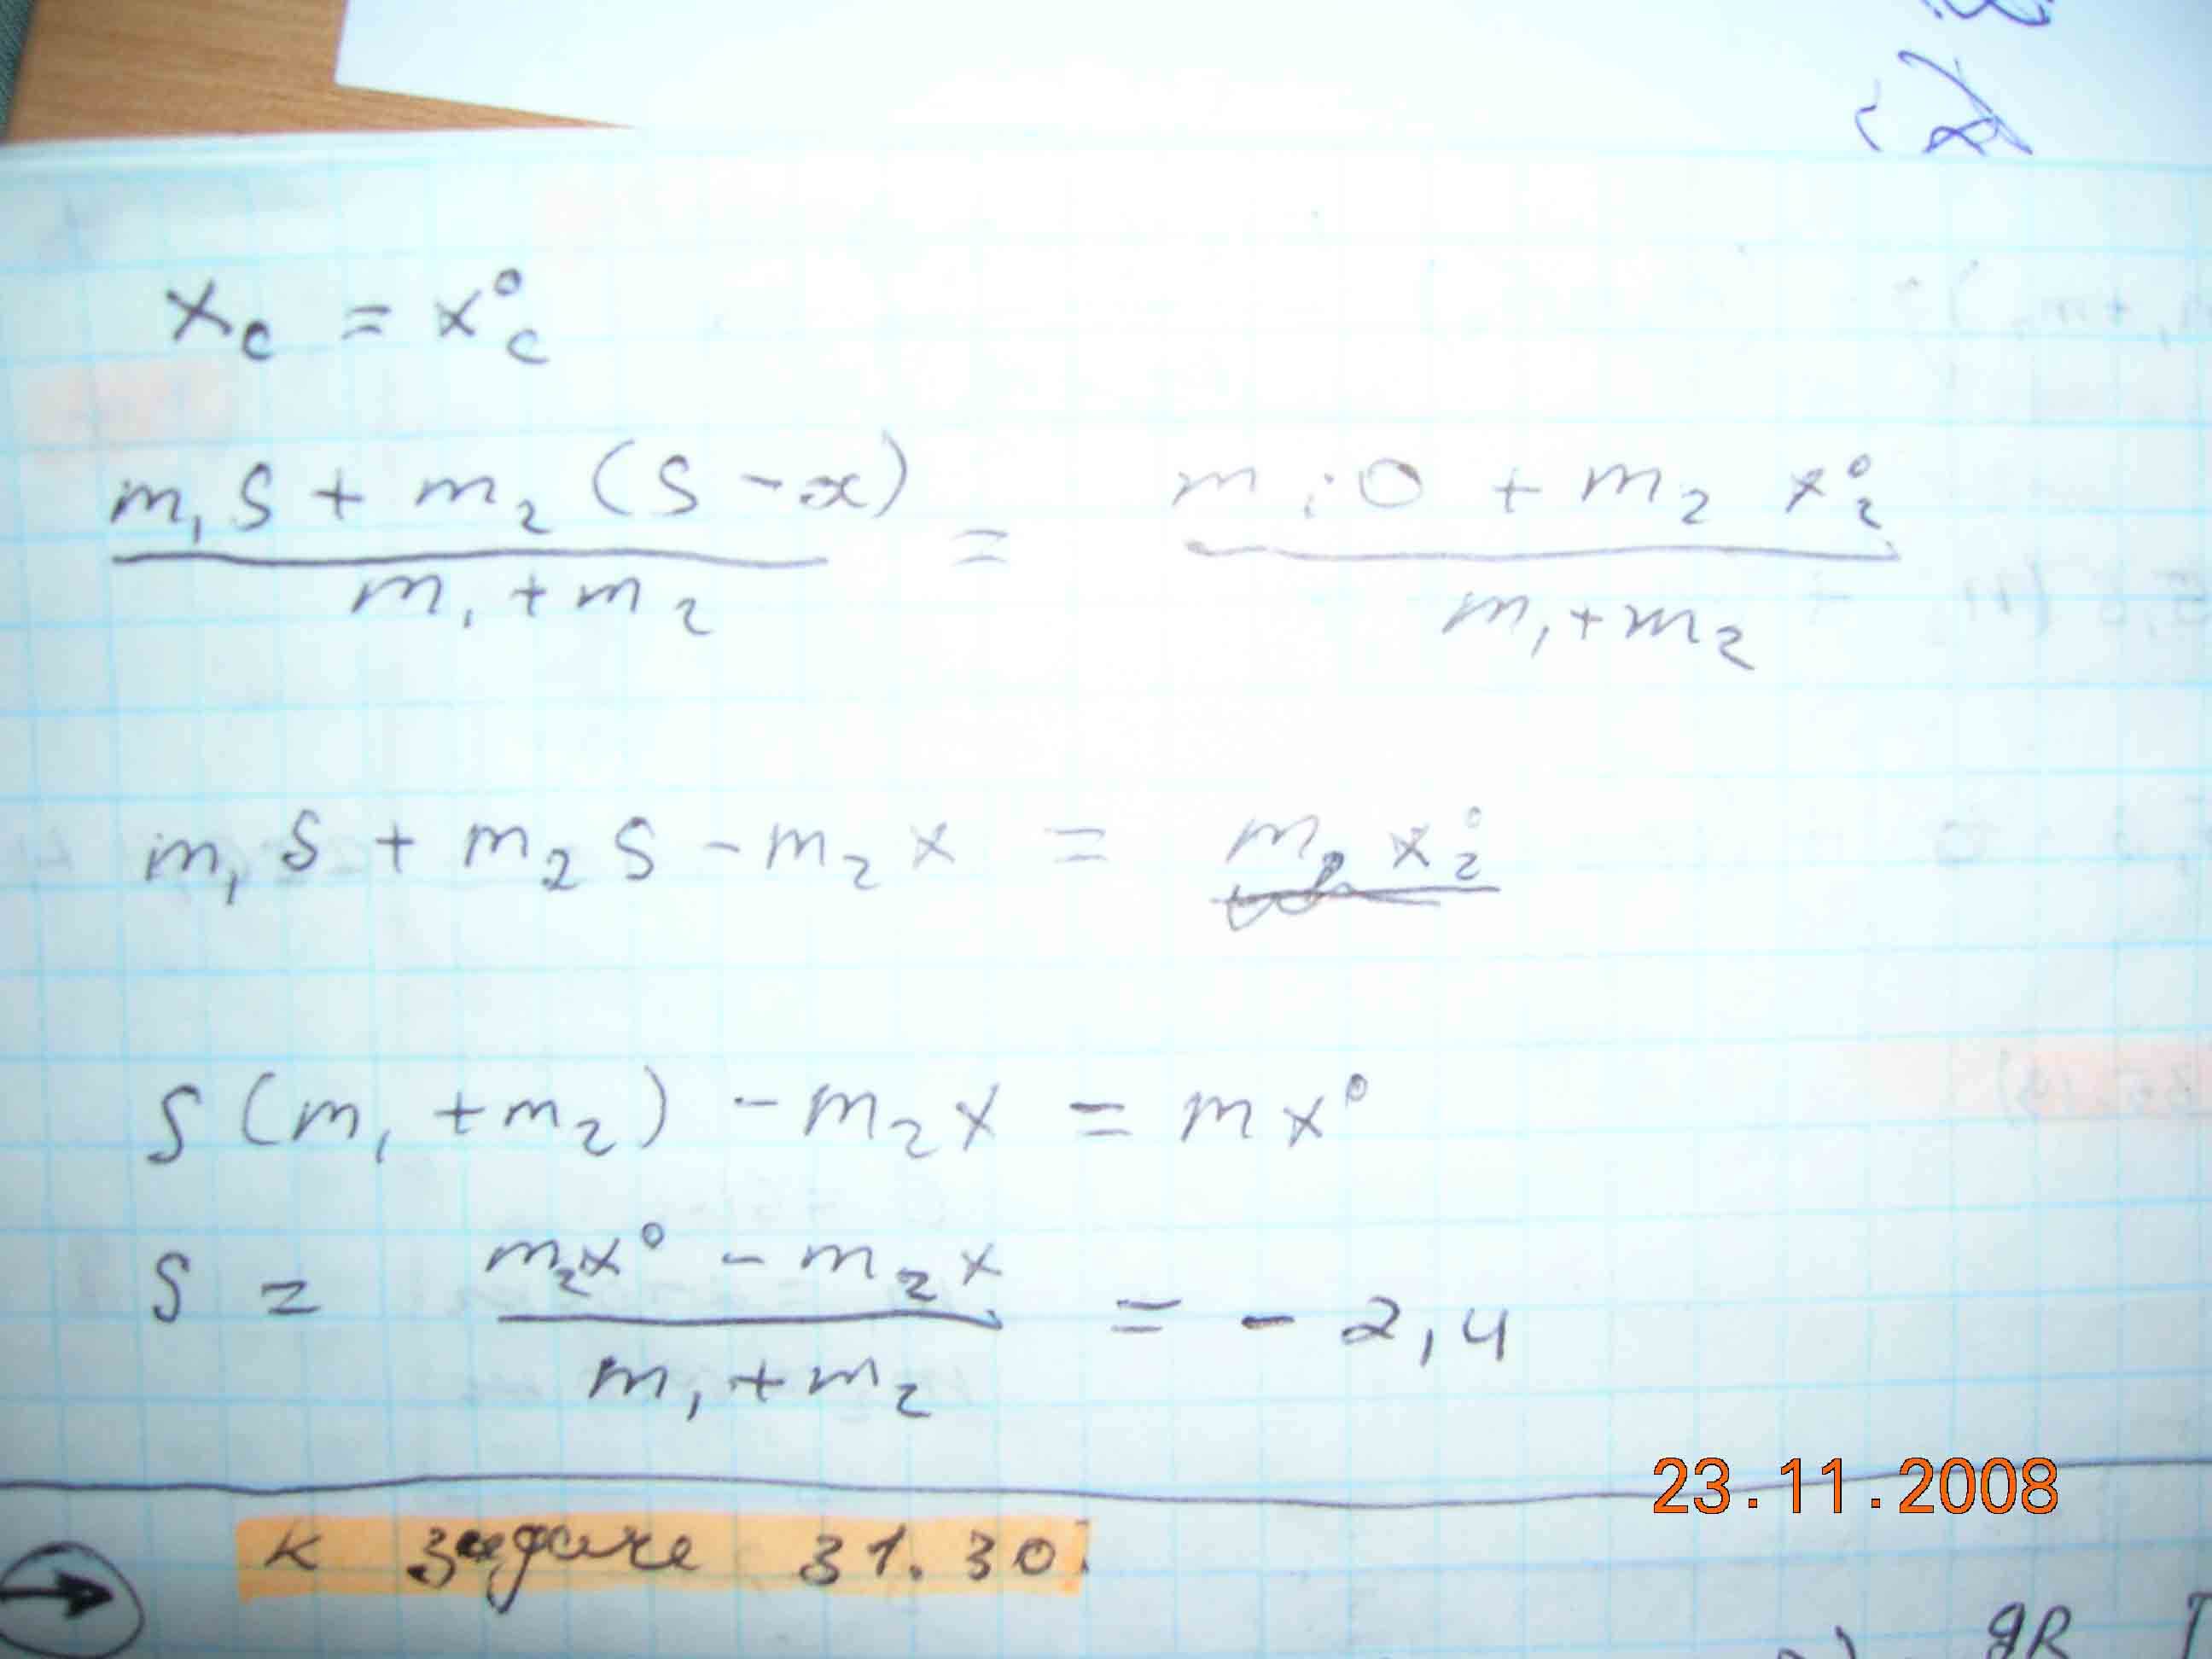 x_c = x°_c
m₁S + m₂(S - x) / m₁ + m₂ = m₁·0 + m₂ x°₂ / m₁ + m₂
m₁S + m₂S - m₂x = m₂ x°₂
S(m₁ + m₂) - m₂x = mx°
S = m₂x° - m₂x / m₁ + m₂ = - 2,4
23.11.2008
к задаче 31.30
gR